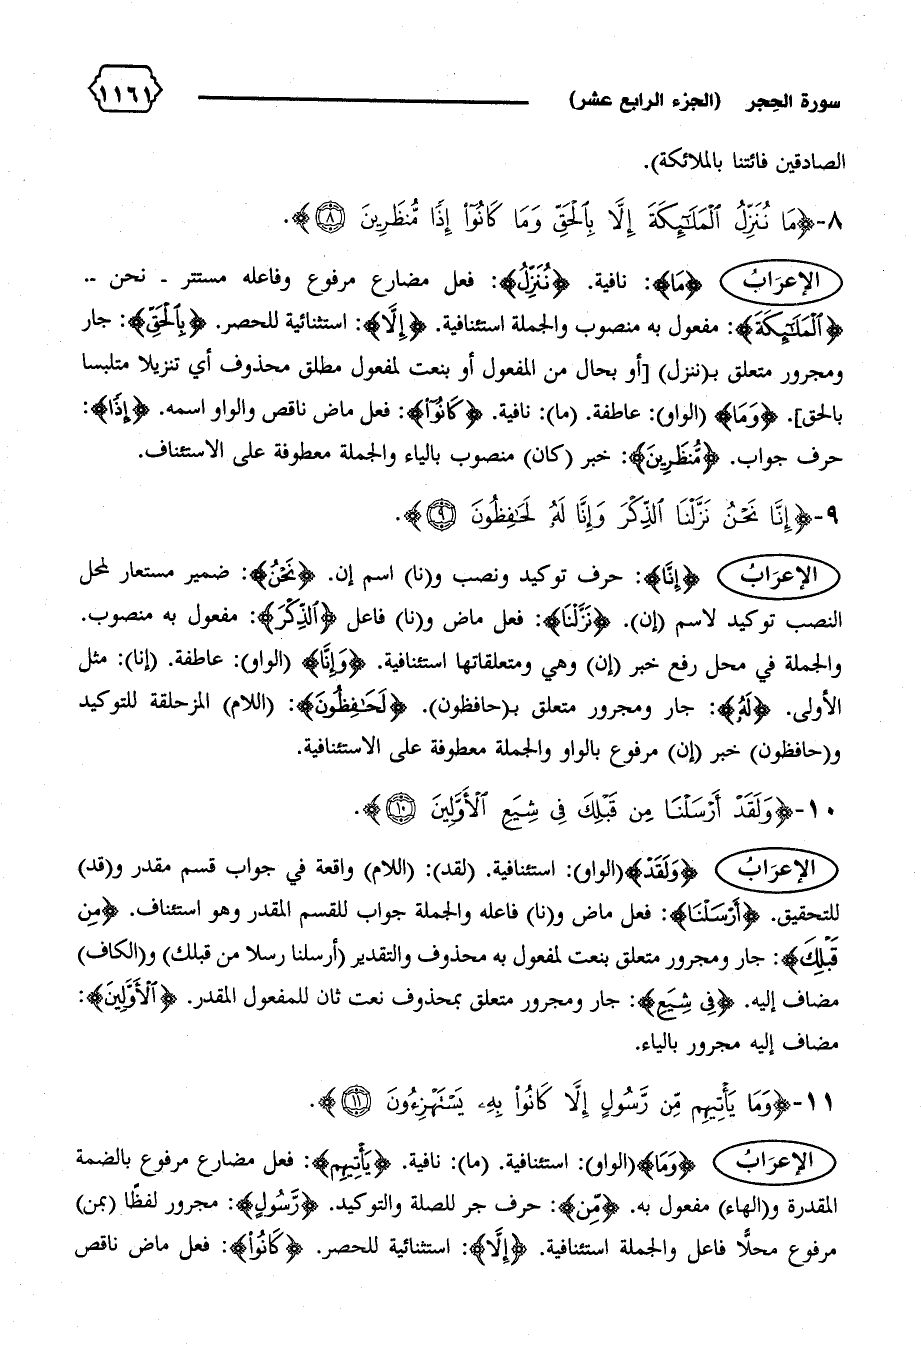 سورة الحجر (الجزء الرابع عشر) ١١٦١
الصادقين فائتنا بالملائكة).
٨-﴿مَا نُنَزِّلُ ٱلْمَلَـٰٓئِكَةَ إِلَّا بِٱلْحَقِّ وَمَا كَانُوٓا۟ إِذًا مُّنظَرِينَ ٨﴾.
الإعرَابُ ﴿مَا﴾: نافية. ﴿نُنَزِّلُ﴾: فعل مضارع مرفوع وفاعله مستتر ـ نحن ..
﴿ٱلْمَلَـٰٓئِكَةَ﴾: مفعول به منصوب والجملة استئنافية. ﴿إِلَّا﴾: استثنائية للحصر. ﴿بِٱلْحَقِّ﴾: جار
ومجرور متعلق بـ(ننزل) [أو بحال من المفعول أو بنعت لمفعول مطلق محذوف أي تنزيلا متلبسا
بالحق]. ﴿وَمَا﴾ (الواو): عاطفة. (ما): نافية. ﴿كَانُوٓا۟﴾: فعل ماض ناقص والواو اسمه. ﴿إِذًا﴾:
حرف جواب. ﴿مُّنظَرِينَ﴾: خبر (كان) منصوب بالياء والجملة معطوفة على الاستئناف.
٩-﴿إِنَّا نَحْنُ نَزَّلْنَا ٱلذِّكْرَ وَإِنَّا لَهُۥ لَحَـٰفِظُونَ ٩﴾.
الإعرَابُ ﴿إِنَّا﴾: حرف توكيد ونصب و(نا) اسم إن. ﴿نَحْنُ﴾: ضمير مستعار لمحل
النصب توكيد لاسم (إن). ﴿نَزَّلْنَا﴾: فعل ماض و(نا) فاعل ﴿ٱلذِّكْرَ﴾: مفعول به منصوب.
والجملة في محل رفع خبر (إن) وهي ومتعلقاتها استئنافية. ﴿وَإِنَّا﴾ (الواو): عاطفة. (إنا): مثل
الأولى. ﴿لَهُۥ﴾: جار ومجرور متعلق بـ(حافظون). ﴿لَحَـٰفِظُونَ﴾: (اللام) المزحلقة للتوكيد
و(حافظون) خبر (إن) مرفوع بالواو والجملة معطوفة على الاستئنافية.
١٠-﴿وَلَقَدْ أَرْسَلْنَا مِن قَبْلِكَ فِى شِيَعِ ٱلْأَوَّلِينَ ١٠﴾.
الإعرَابُ ﴿وَلَقَدْ﴾(الواو): استئنافية. (لقد): (اللام) واقعة في جواب قسم مقدر و(قد)
للتحقيق. ﴿أَرْسَلْنَا﴾: فعل ماض و(نا) فاعله والجملة جواب للقسم المقدر وهو استئناف. ﴿مِن
قَبْلِكَ﴾: جار ومجرور متعلق بنعت لمفعول به محذوف والتقدير (أرسلنا رسلا من قبلك) و(الكاف)
مضاف إليه. ﴿فِى شِيَعِ﴾: جار ومجرور متعلق بمحذوف نعت ثان للمفعول المقدر. ﴿ٱلْأَوَّلِينَ﴾:
مضاف إليه مجرور بالياء.
١١-﴿وَمَا يَأْتِيهِم مِّن رَّسُولٍ إِلَّا كَانُوا۟ بِهِۦ يَسْتَهْزِءُونَ ١١﴾.
الإعرَابُ ﴿وَمَا﴾(الواو): استئنافية. (ما): نافية. ﴿يَأْتِيهِم﴾: فعل مضارع مرفوع بالضمة
المقدرة و(الهاء) مفعول به. ﴿مِّن﴾: حرف جر للصلة والتوكيد. ﴿رَّسُولٍ﴾: مجرور لفظًا (بمن)
مرفوع محلًّا فاعل والجملة استئنافية. ﴿إِلَّا﴾: استثنائية للحصر. ﴿كَانُوا۟﴾: فعل ماض ناقص